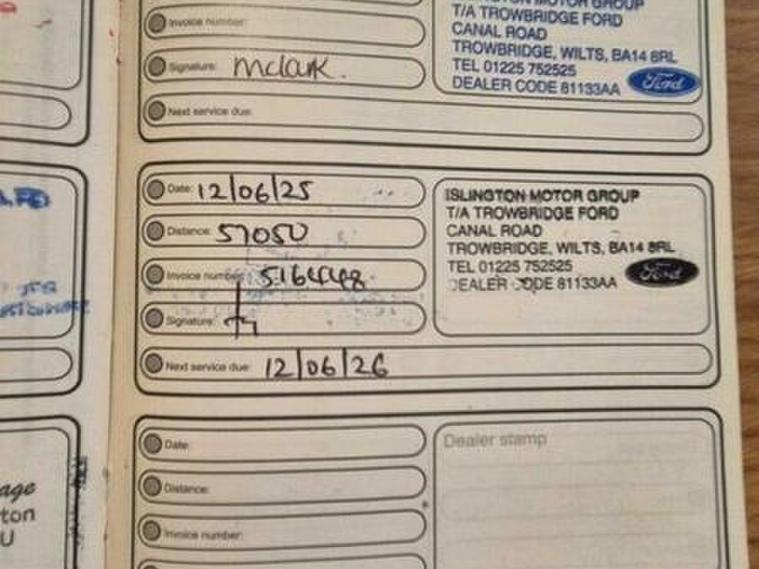 ISLINGTON MOTOR GROUP
T/A TROWBRIDGE FORD
CANAL ROAD
TROWBRIDGE, WILTS, BA14 8RL
TEL 01225 752525
DEALER CODE 81133AA
Ford
Invoice number:
Signature: mclark.
Next service due:
Date: 12/06/25
Distance: 57050
Invoice number: 5164448
Signature:
Next service due: 12/06/26
ISLINGTON MOTOR GROUP
T/A TROWBRIDGE FORD
CANAL ROAD
TROWBRIDGE, WILTS, BA14 8RL
TEL 01225 752525
DEALER CODE 81133AA
Ford
Date:
Distance:
Invoice number:
Dealer stamp
age
ton
U